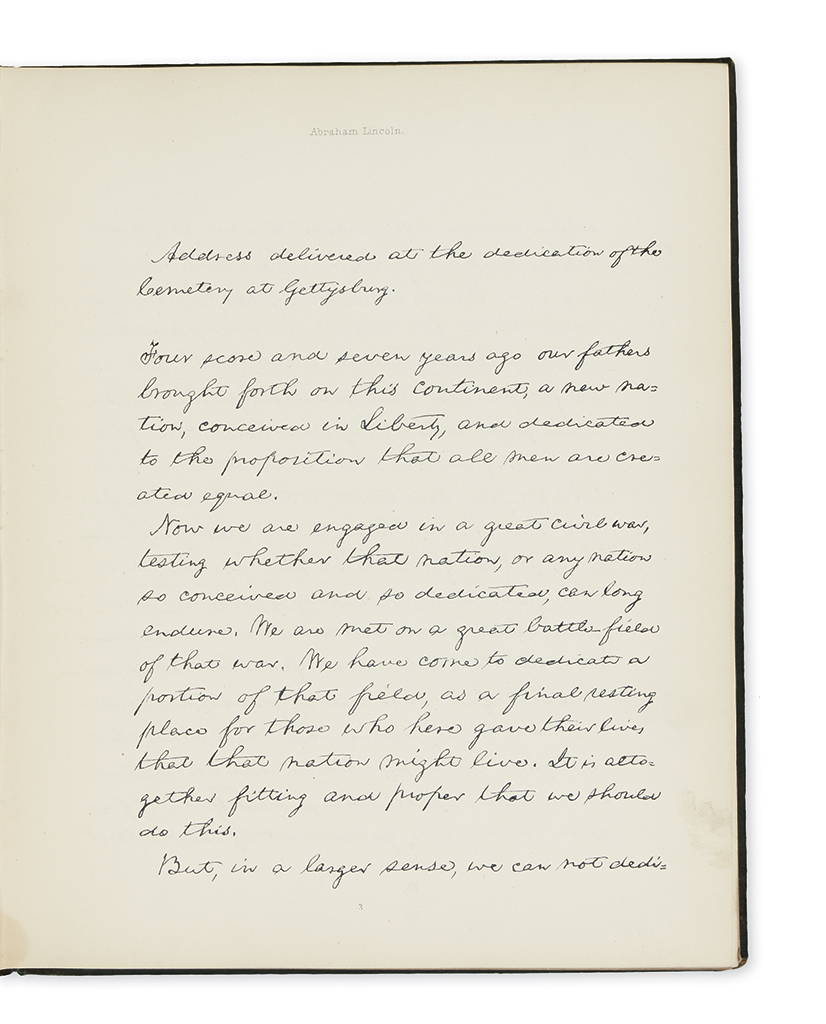 Abraham Lincoln.
Address delivered at the dedication of the
Cemetery at Gettysburg.
Four score and seven years ago our fathers
brought forth on this continent, a new na=
tion, conceived in Liberty, and dedicated
to the proposition that all men are cre=
ated equal.
Now we are engaged in a great civil war,
testing whether that nation, or any nation
so conceived and so dedicated, can long
endure. We are met on a great battle-field
of that war. We have come to dedicate a
portion of that field, as a final resting
place for those who here gave their lives
that that nation might live. It is alto=
gether fitting and proper that we should
do this.
But, in a larger sense, we can not dedi=
3